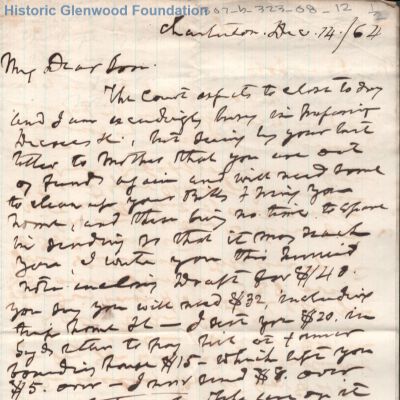 Historic Glenwood Foundation
Charleston. Dec. 14./64
My Dear Son.
The Court expects to close to day
and I am exceedingly busy in preparing
Decrees &c, but seeing by your last
letter to Mother that you are out
of funds again and will need some
to clear up your Bills & bring you
home, and there being no time to spare
in sending so that it may reach
you, I write you this hurried
note inclosing Draft for $40.
you say you will need $32, including
trip home &c — I sent you $20. in
last letter to pay bill at former
boarding house $15 — which left you
$5. over — I now send $8 over